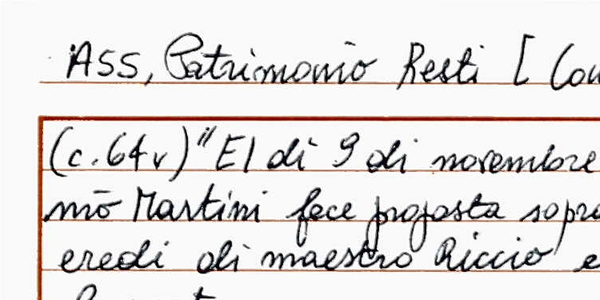 ASS, Patrimonio Resti [ Con
(c.64v) "El dì 9 di novembre
mō Martini fece proposta sopra
eredi di maestro Riccio e